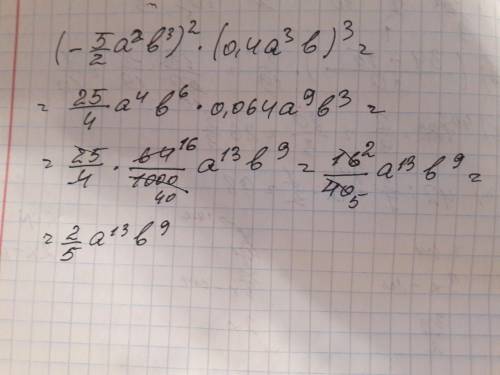 (-5/2 a²b³)² · (0,4a³b)³ =
= 25/4 a⁴b⁶ · 0,064a⁹b³ =
= 25/4 · 64 16/1000 40 a¹³b⁹ = 16 2/40 5 a¹³b⁹ =
= 2/5 a¹³b⁹